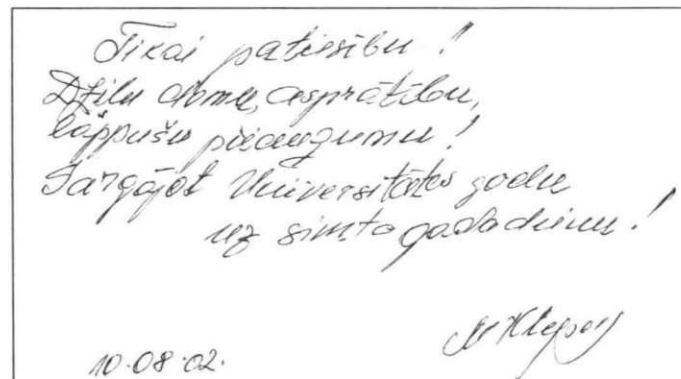 Tikai patiesību!
Dziļu domu, asprātību,
lappušu pieaugumu!
Sargājot Universitātes godu
uz simto gadadienu!
10.08.02.